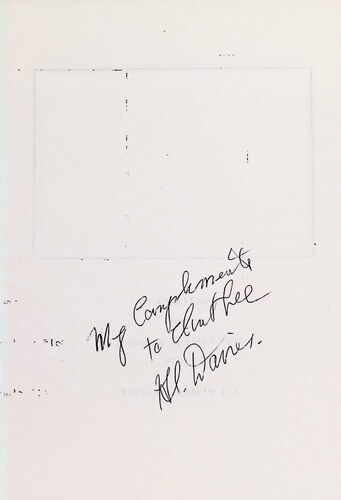 My Compliments
to
Davies.